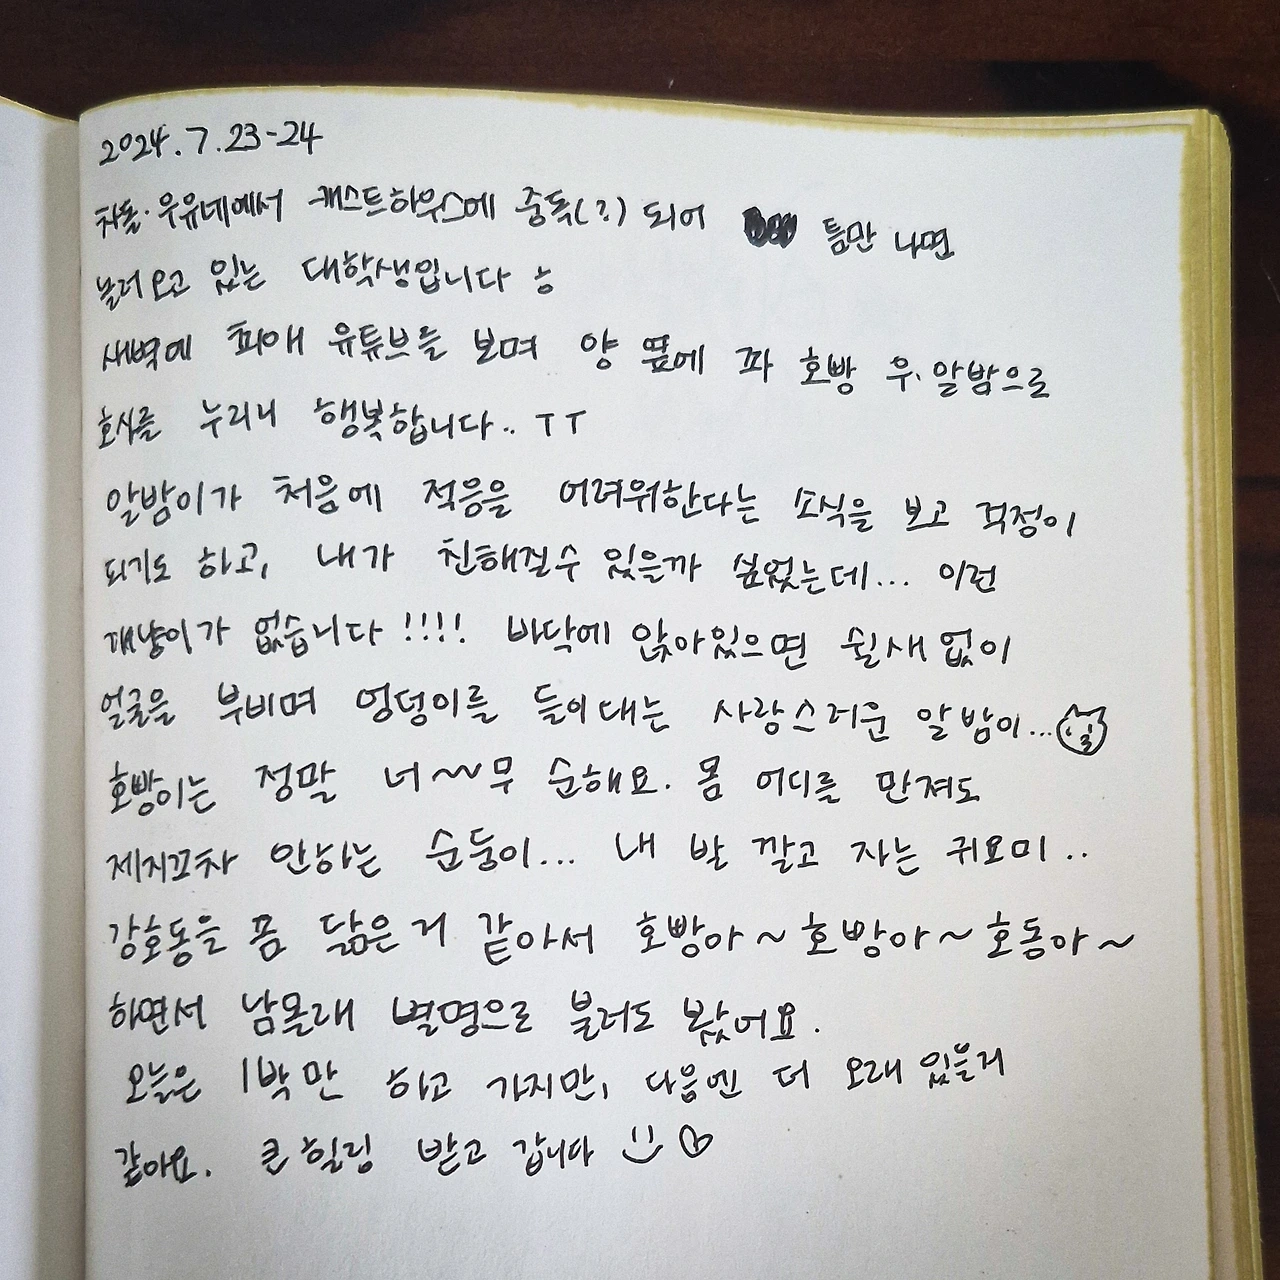 2024.7.23-24
차돌·우유네에서 캐스트하우스에 중독(?) 되어 틈만 나면
놀러오고 있는 대학생입니다 ㅎ
새벽에 최애 유튜브를 보며 양 옆에 좌 호빵 우·알밤으로
호사를 누리니 행복합니다.. ㅜㅜ
알밤이가 처음에 적응을 어려워한다는 소식을 보고 걱정이
되기도 하고, 내가 친해질수 있을까 싶었는데... 이런
개냥이가 없습니다!!!! 바닥에 앉아있으면 쉴새없이
얼굴을 부비며 엉덩이를 들이대는 사랑스러운 알밤이...
호빵이는 정말 너~~무 순해요. 몸 어디를 만져도
제지조차 안하는 순둥이... 내 발 깔고 자는 귀요미..
강호동을 쫌 닮은거 같아서 호빵아~호빵아~호동아~
하면서 남몰래 별명으로 불러도 봤어요.
오늘은 1박만 하고 가지만, 다음엔 더 오래 있을거
같아요. 큰 힐링 받고 갑니다